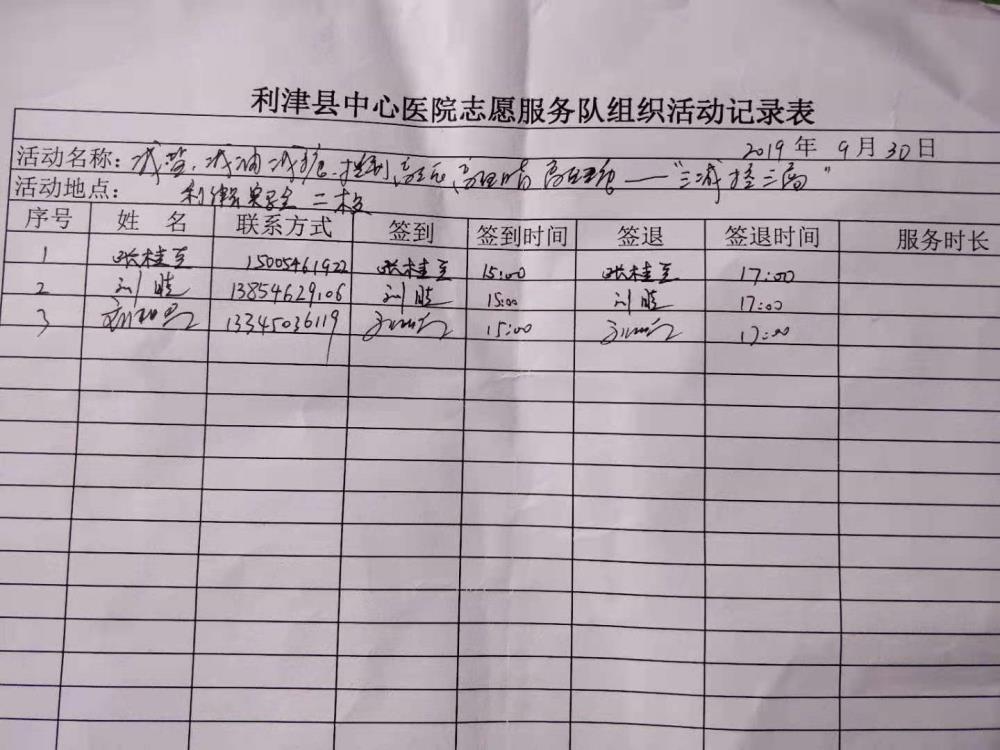 利津县中心医院志愿服务队组织活动记录表
2019年 9月30日
活动名称：减盐、减油、减糖、控制高血压、高血脂、高血糖——“三减控三高”
活动地点： 利津实验二校
序号 姓名 联系方式 签到 签到时间 签退 签退时间 服务时长
1 张桂至 15005461922 张桂至 15:00 张桂至 17:00
2 刘 13854629106 刘 15:00 刘 17:00
3 13345036119 15:00 17:00